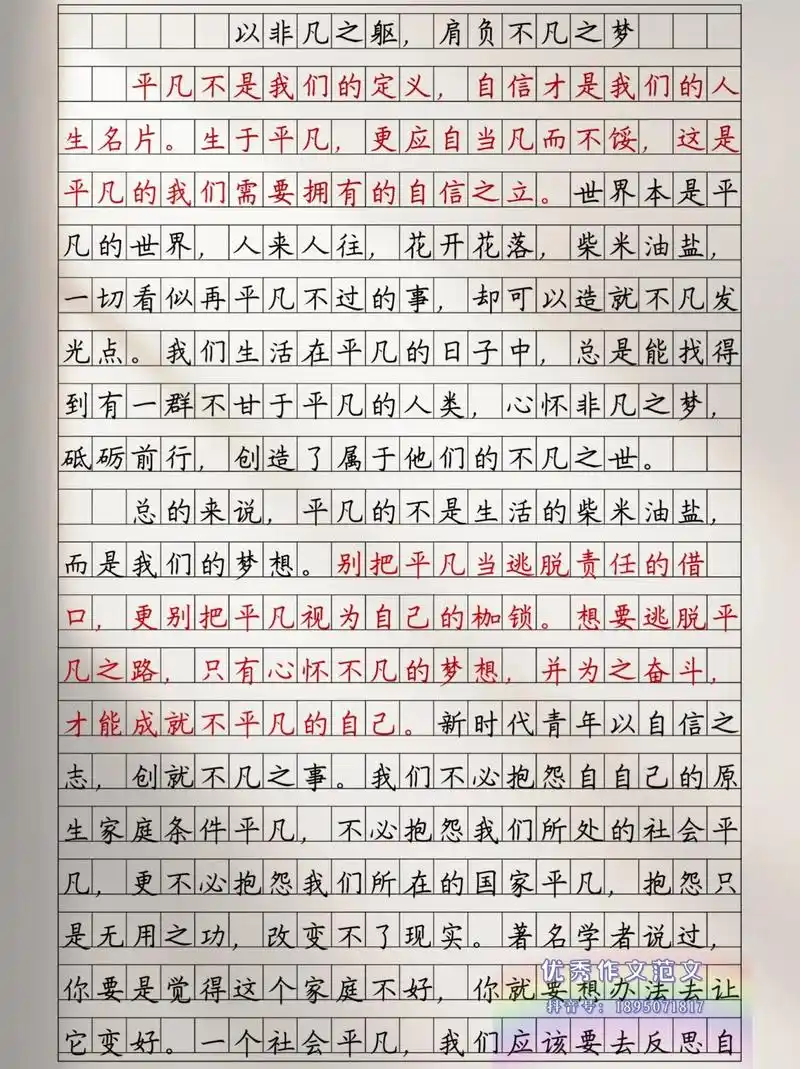 以非凡之躯，肩负不凡之梦
平凡不是我们的定义，自信才是我们的人
生名片。生于平凡，更应自当凡而不馁，这是
平凡的我们需要拥有的自信之立。世界本是平
凡的世界，人来人往，花开花落，柴米油盐，
一切看似再平凡不过的事，却可以造就不凡发
光点。我们生活在平凡的日子中，总是能找得
到有一群不甘于平凡的人类，心怀非凡之梦，
砥砺前行，创造了属于他们的不凡之世。
总的来说，平凡的不是生活的柴米油盐，
而是我们的梦想。别把平凡当逃脱责任的借
口，更别把平凡视为自己的枷锁。想要逃脱平
凡之路，只有心怀不凡的梦想，并为之奋斗，
才能成就不平凡的自己。新时代青年以自信之
志，创就不凡之事。我们不必抱怨自自己的原
生家庭条件平凡，不必抱怨我们所处的社会平
凡，更不必抱怨我们所在的国家平凡，抱怨只
是无用之功，改变不了现实。著名学者说过，
你要是觉得这个家庭不好，你就要想办法去让
它变好。一个社会平凡，我们应该要去反思自
优秀作文范文
抖音号：1895071817